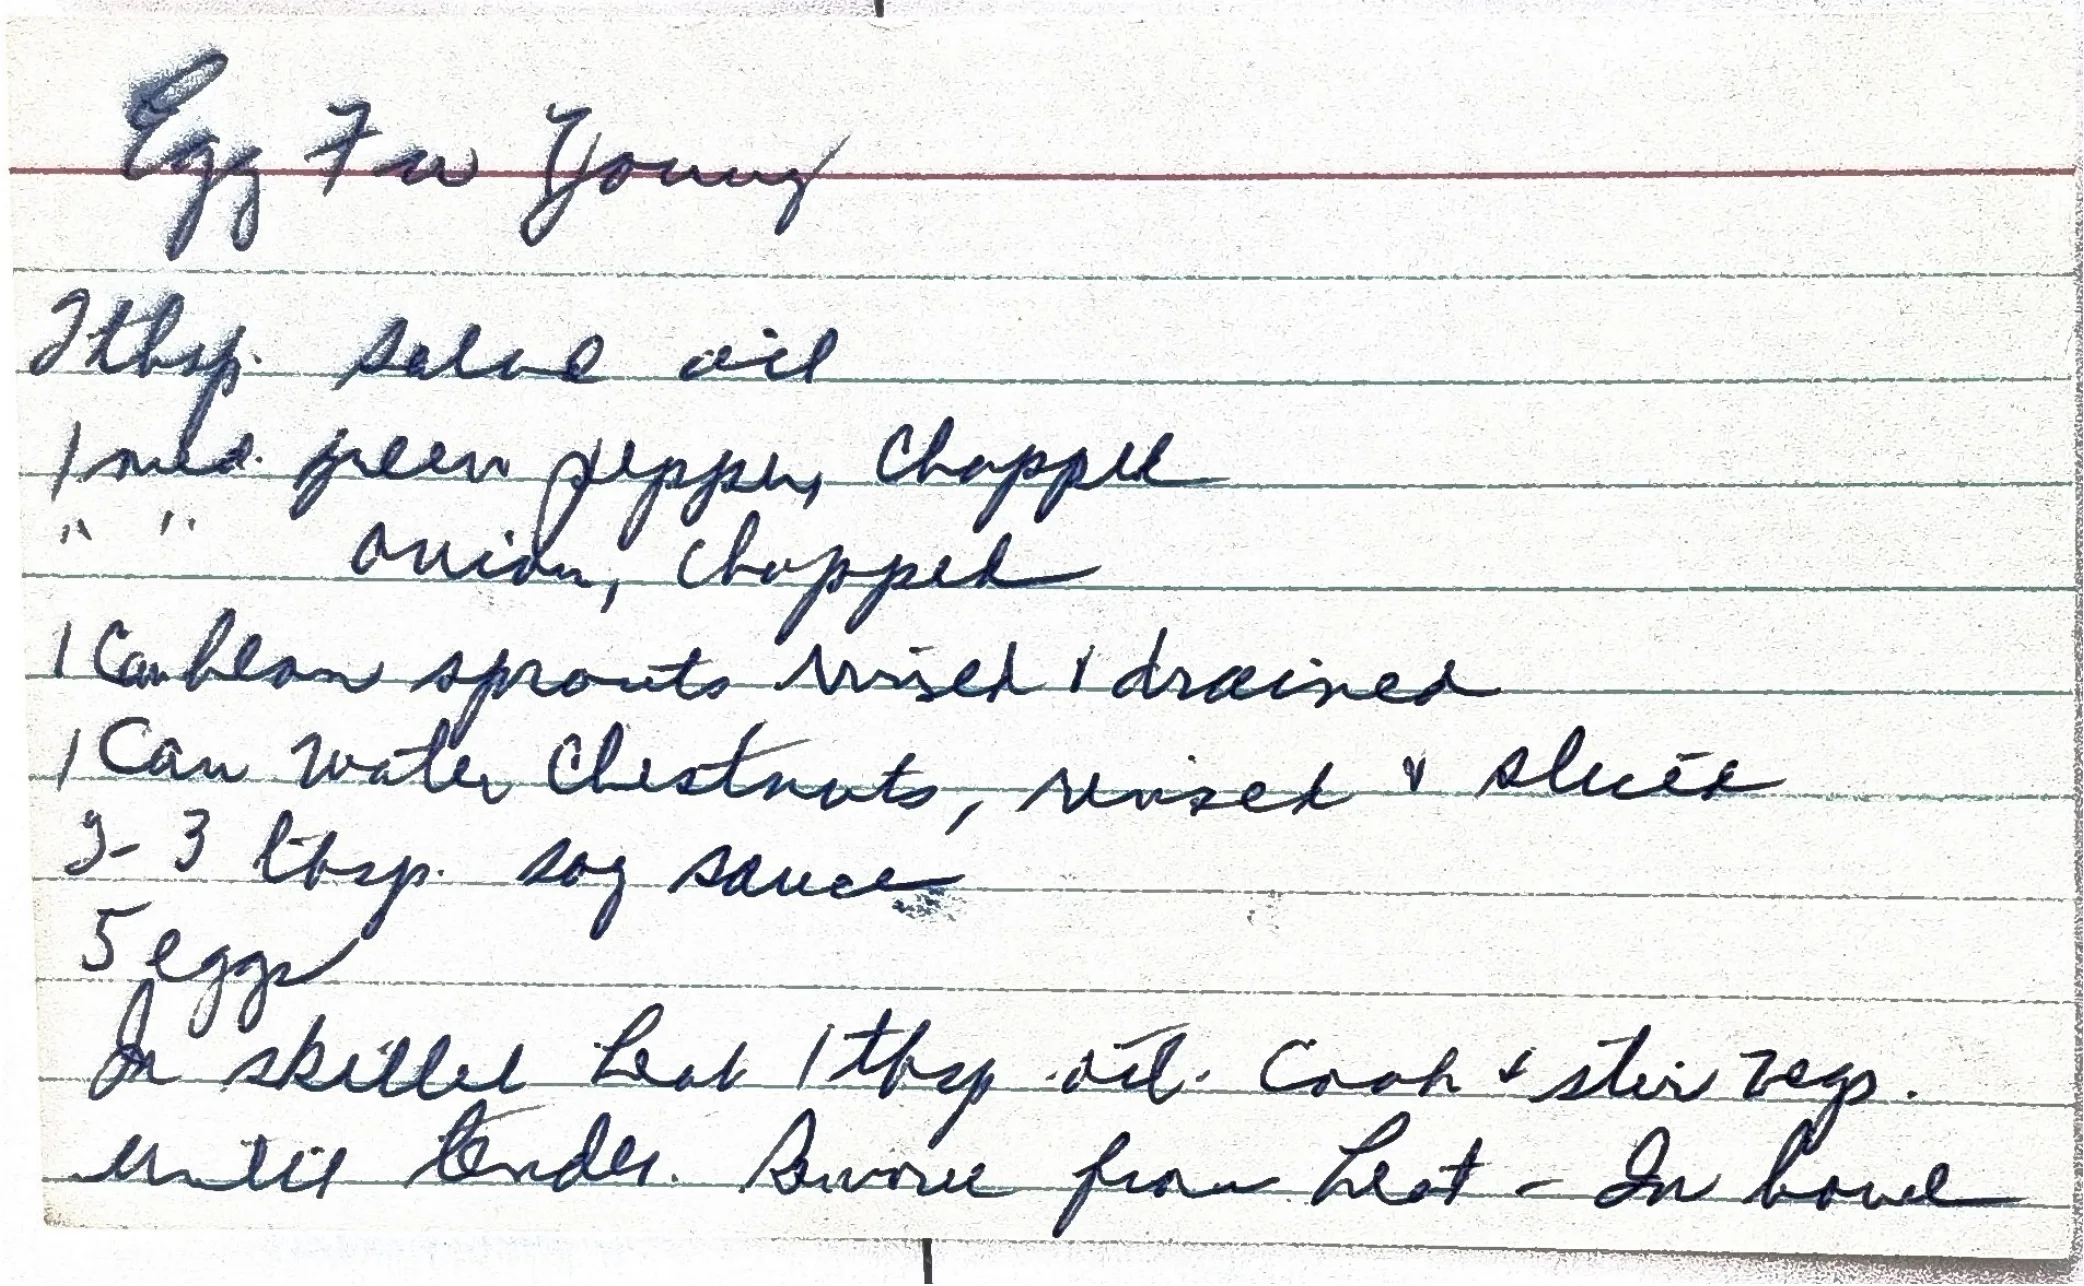 Egg Foo Young
2 tbsp. salad oil
1 med. green pepper, chopped
" " onion, chopped
1 Can bean sprouts rinsed & drained
1 Can water Chestnuts, rinsed & sliced
2-3 tbsp. soy sauce
5 eggs
In skillet heat 1 tbsp oil. Cook & stir vegs.
until tender. Remove from heat - In bowl